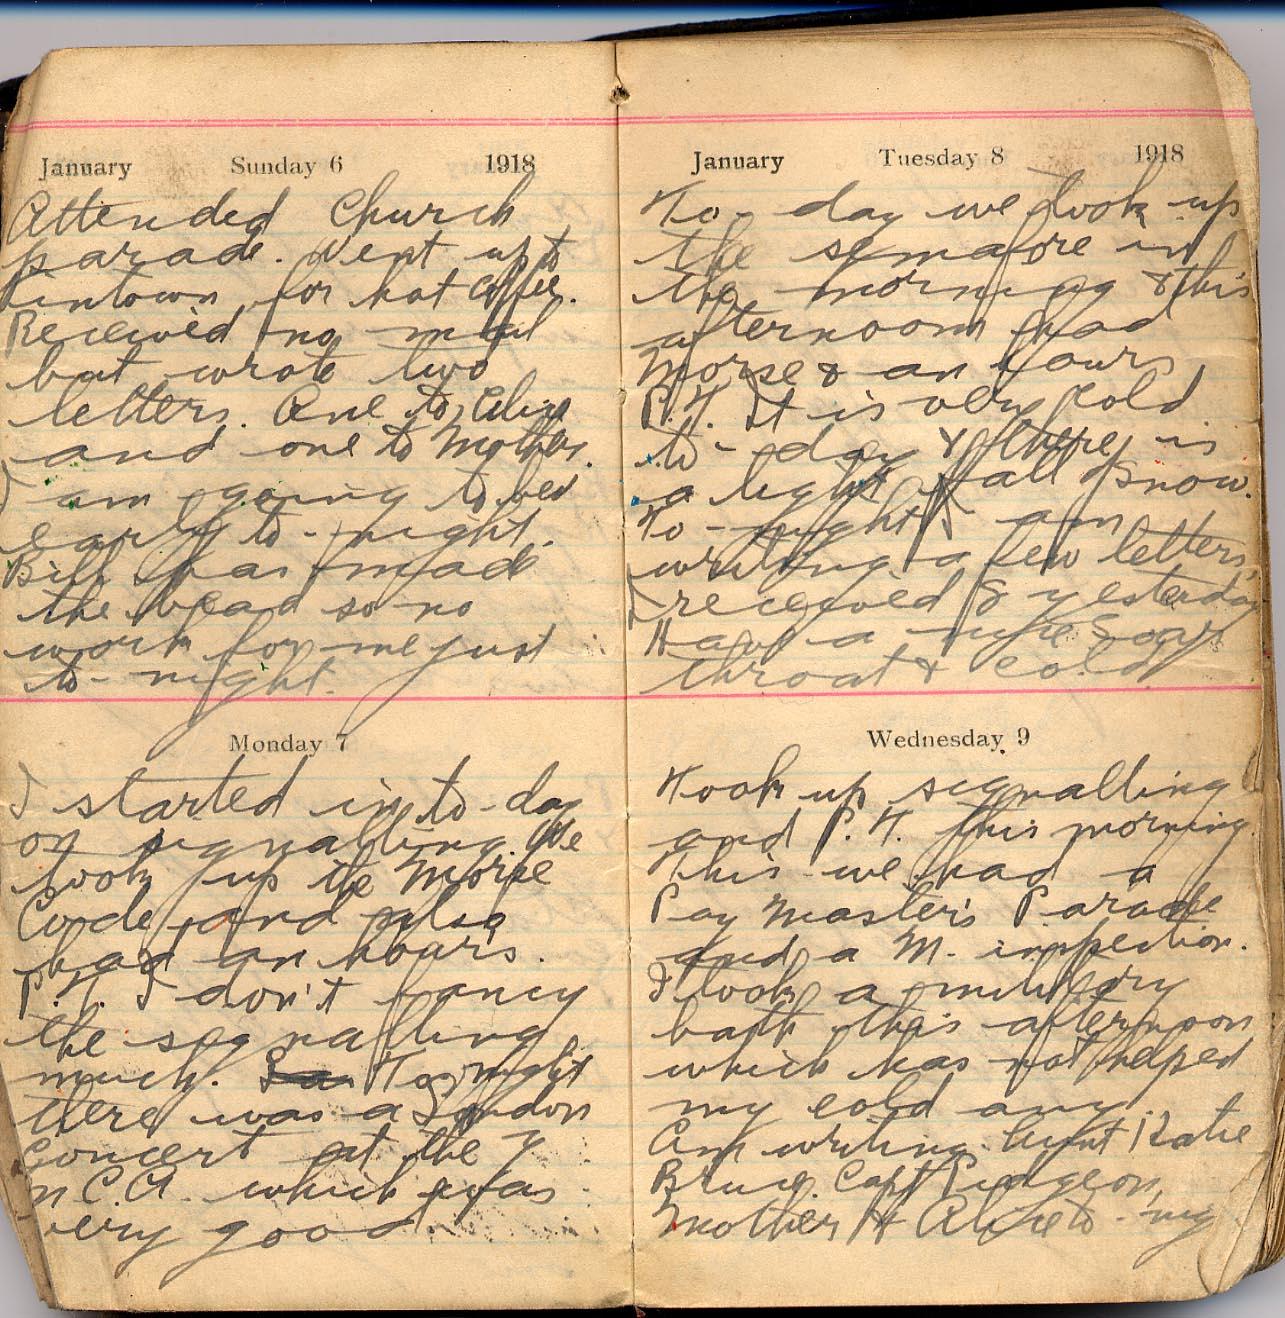 January Sunday 6 1918
Attended Church
parade. Went up to
for hot coffee.
Received no mail
but wrote two
letters. One to Alice
and one to Mother.
I am going to bed
early to-night.
Bill has made
the bead so no
work for me just
to-night.
Monday 7
I started in to-day
on signalling. We
took up the Morse
Code and also
had an hours.
P.T. I don't fancy
the signalling
much. To-night
there was a London
Concert at the Y
M C.A. which was
very good
January Tuesday 8 1918
To-day we took up
the semafore in
the morning & this
afternoon had
Morse & an hours
P.T. It is very cold
to-day & there is
a light fall of snow.
To-night I am
writing a few letters,
I received 8 yesterday
Have a nice soar
throat & cold
Wednesday 9
Took up signalling
and P.T. this morning.
This we had a
Pay Master's Parade
and a M. inspection.
I took a military
bath this afternoon
which has not helped
my cold any
Am writing Aunt Katie
Bruce. Capt Pidgeon,
Mother & Alice to-nig